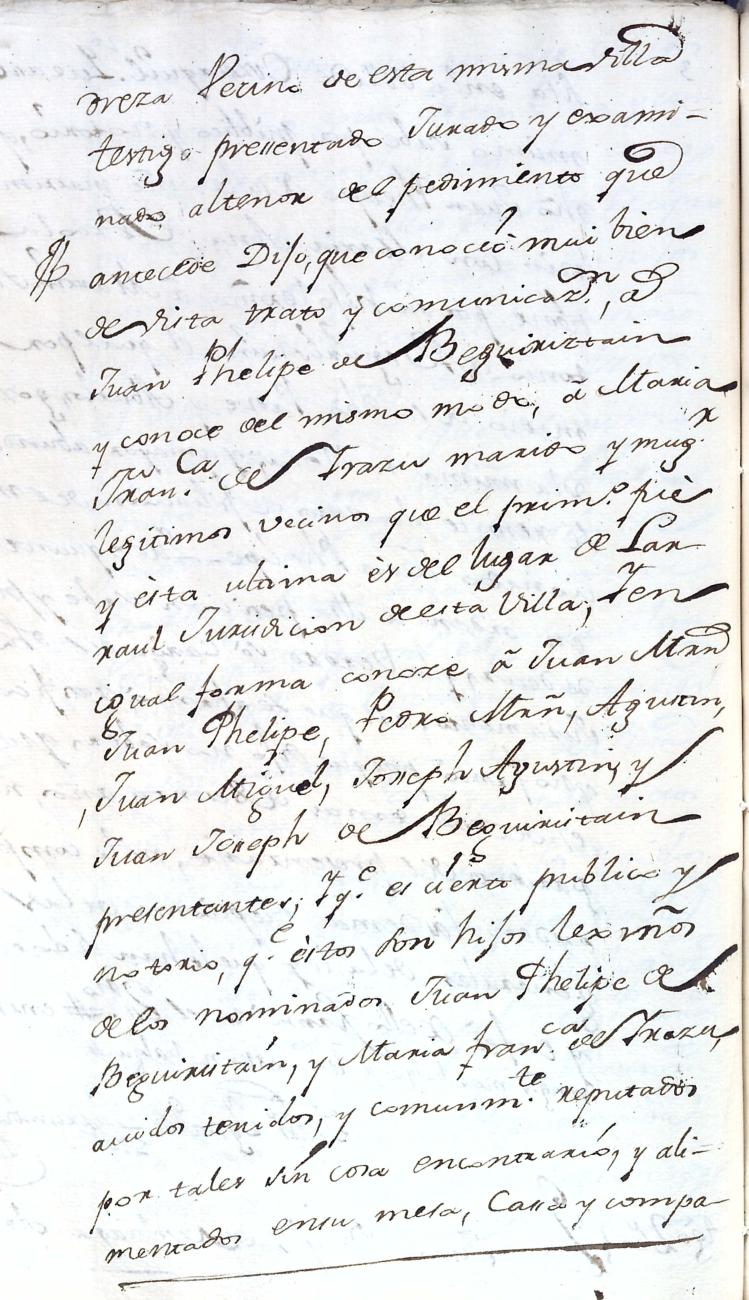 dreza Vecino de esta misma villa
testigo presentado Jurado y exami-
nado altenor del pedimento que
antecede Dijo, que conocio mui bien
de vista trato y comunicaz.n, a
Juan Phelipe de Beguiristain
y conoce del mismo modo, a Maria
Fran.ca de Irazu marido y mug.r
legitimos vecinos que el prim.o fue
y esta ultima es del lugar de Lar-
raul Jurisdicion de esta Villa, Y en
igual forma conoze a Juan Mrn
Juan Phelipe, Pedro Mrñ, Agustin,
Juan Miguel, Joseph Agustin, y
Juan Joseph de Beguiristain
presentantes; Y q.e es cierto publico y
notorio, q.e éstos son hijos lexmños
de los nominados Juan Phelipe de
Beguiristaín, y Maria fran.ca de Irazu,
auidos tenidos, y comunm.te reputados
por tales sín cosa encontrarió, y ali-
mentados ensu mesa, Cassa y compa-